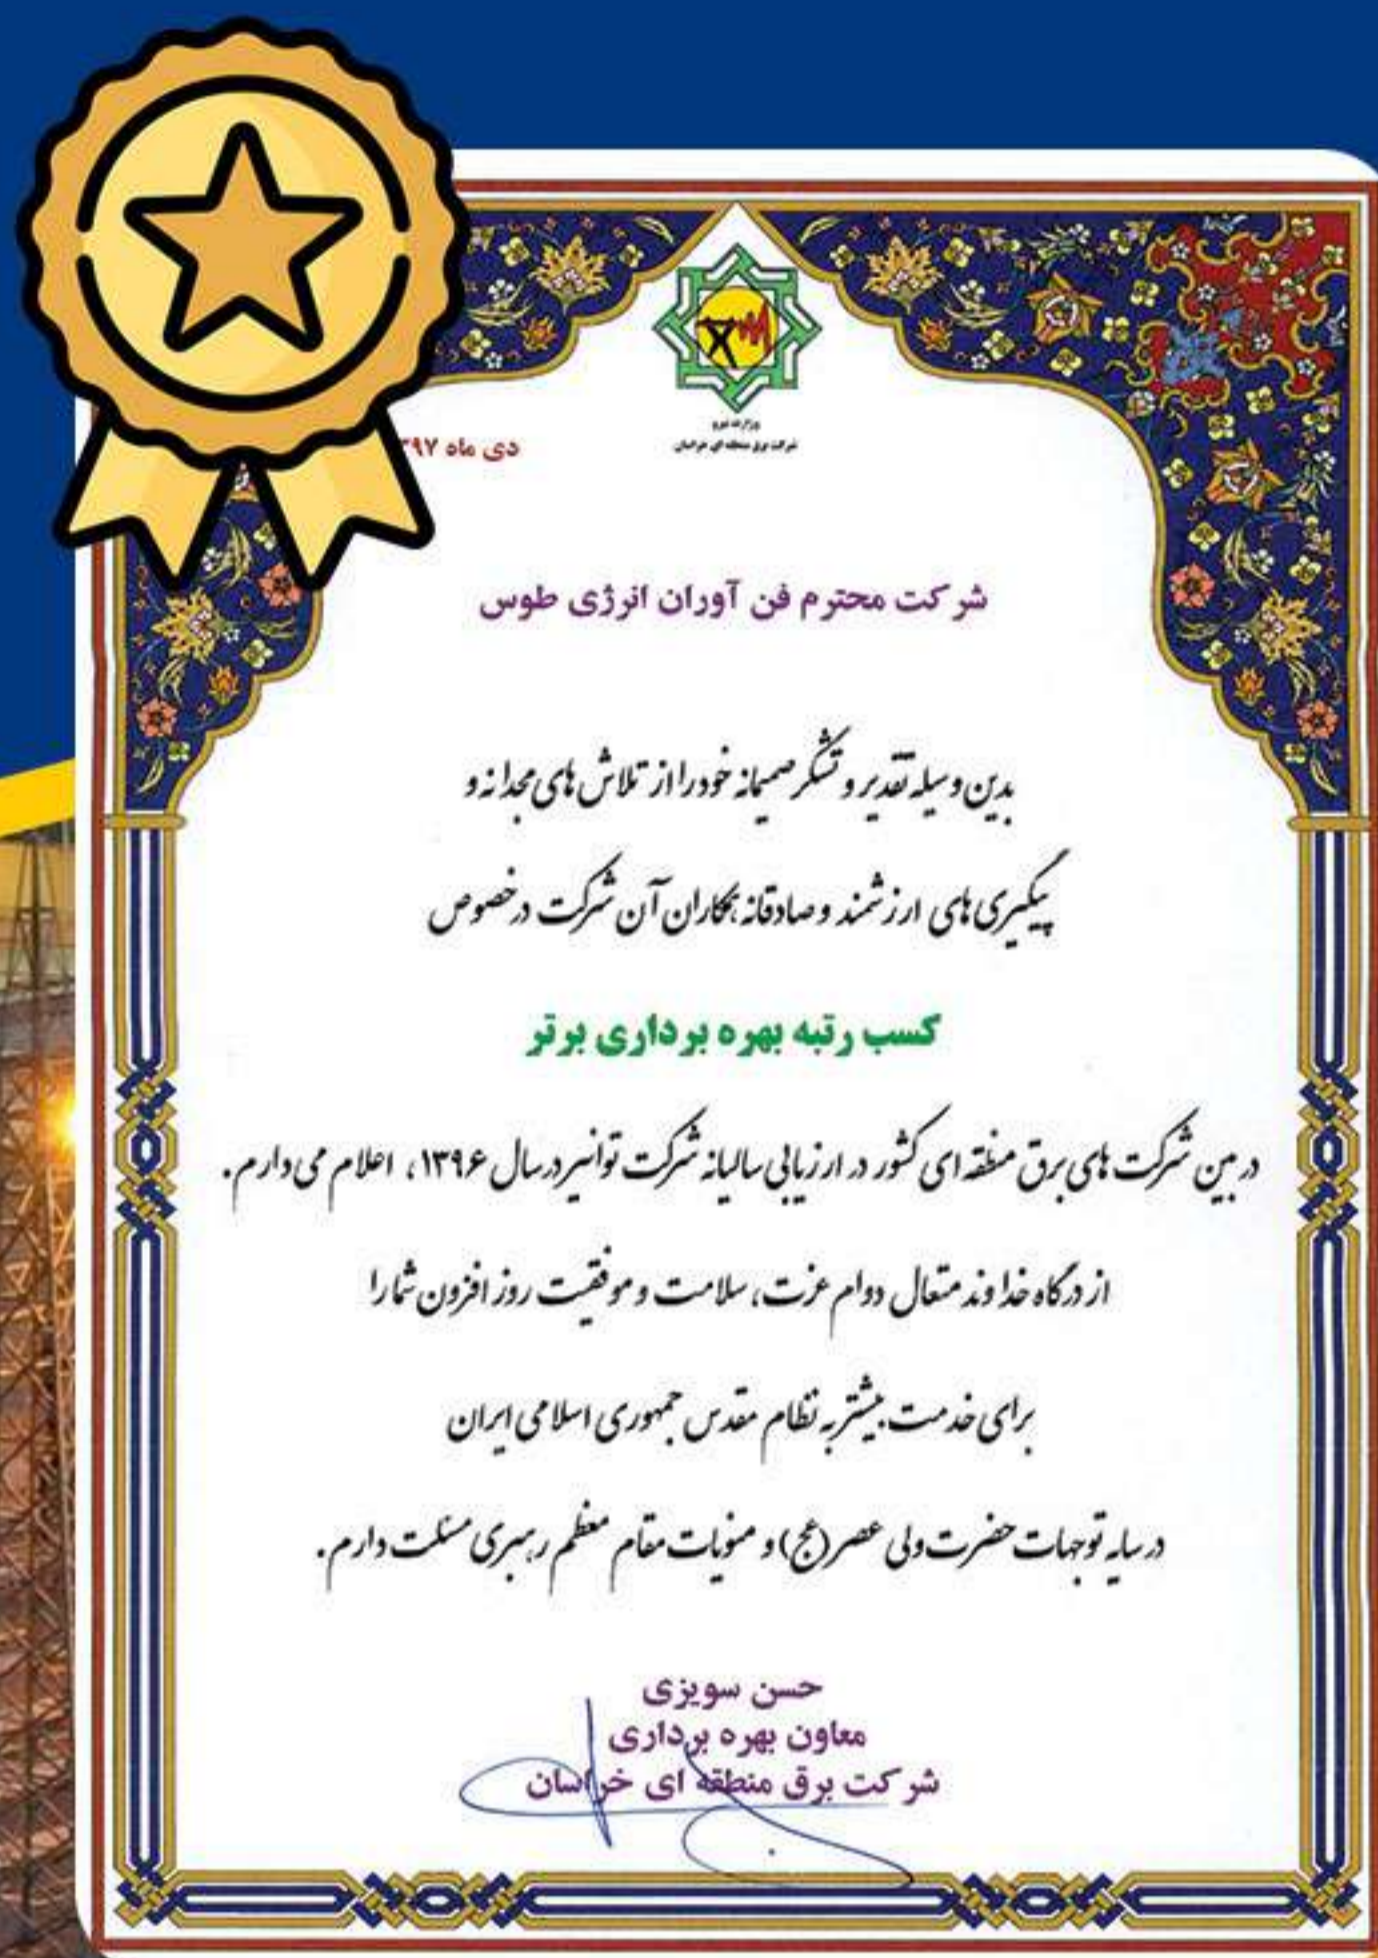 وزارت نیرو
شرکت برق منطقه ای خراسان
دی ماه ۳۹۷
شرکت محترم فن آوران انرژی طوس
بدین وسیله تقدیر و تشکر صمیمانه خود را از تلاش های مجدانه و
پیگیری های ارزشمند و صادقانه همکاران آن شرکت در خصوص
کسب رتبه بهره برداری برتر
در بین شرکت های برق منطقه ای کشور در ارزیابی سالیانه شرکت توانیر در سال ۱۳۹۶، اعلام می دارم.
از درگاه خداوند متعال دوام عزت، سلامت و موفقیت روز افزون شما را
برای خدمت بیشتر به نظام مقدس جمهوری اسلامی ایران
در سایه توجهات حضرت ولی عصر (عج) و منویات مقام معظم رهبری مسئلت دارم.
حسن سویزی
معاون بهره برداری
شرکت برق منطقه ای خراسان